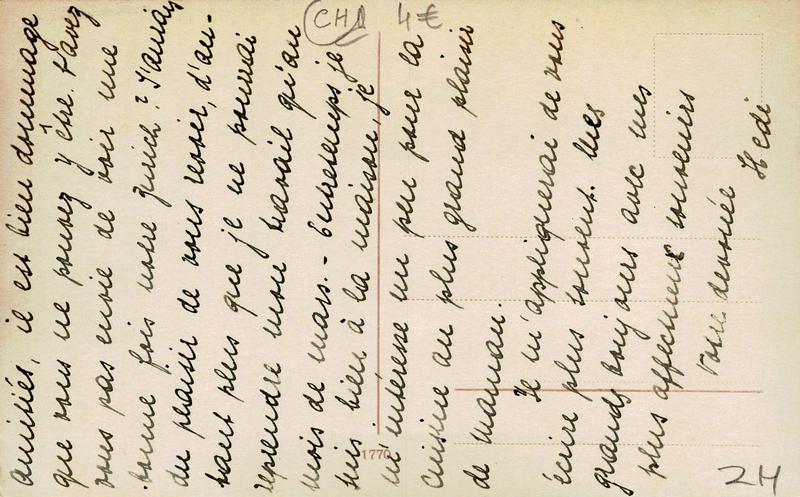 amitiés, il est bien dommage
que vous ne pouvez y être. N'avez
vous pas envie de voir une
bonne fois notre Zurich? J'aurais
du plaisir de vous revoir, d'au-
tant plus que je ne pourrai
reprendre mon travail qu'au
mois de mars. - Entretemps je
suis bien à la maison, je
m'intéresse un peu pour la
cuisine au plus grand plaisir
de maman.
Je m'appliquerai de vous
écrire plus souvent. Mes
grands bonjours avec mes
plus affectueux souvenirs
votre dévouée Hedi
CHA 4€
1770
24